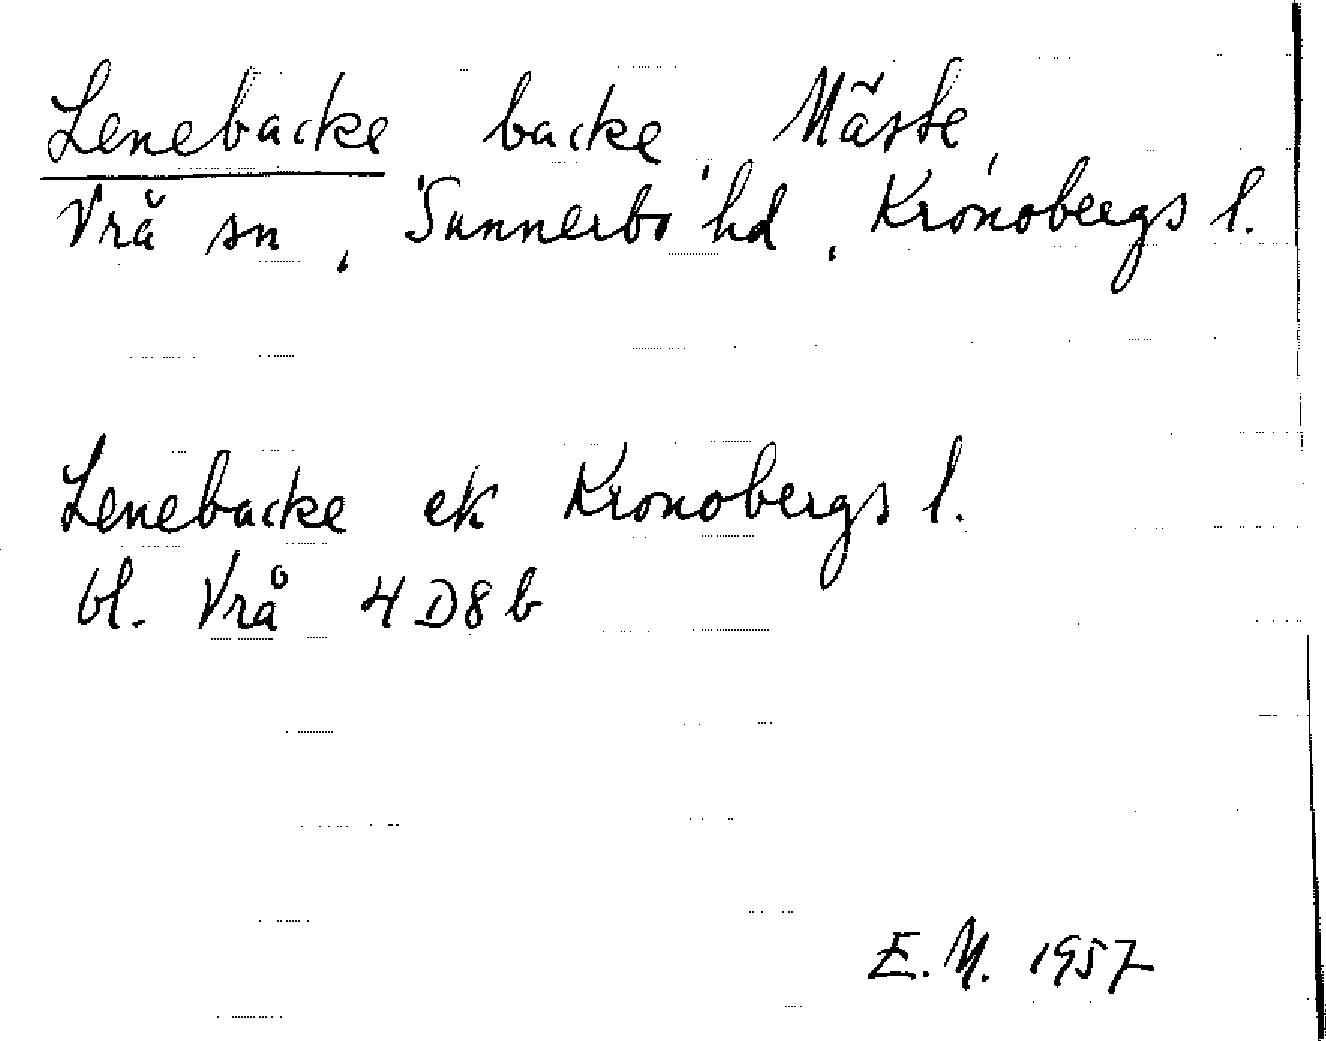 Lenebacke backe, Mäste,
Vrå sn, Sunnerbo hd, Kronobergs l.
Lenebacke ek Kronobergs l.
bl. Vrå 4D8b
E. M. 1957